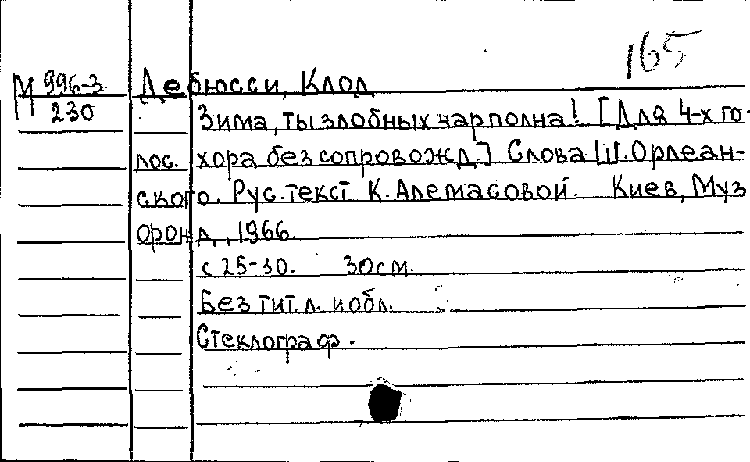 165
М 996-3 Дебюсси, Клод
230 Зима, ты злобных чар полна! [Для 4-х го-
лос. хора без сопровожд.] Слова Ш. Орлеан-
ского. Рус. текст К. Алемасовой. Киев, Муз
фонд, 1966.
с 25-30. 30см.
Без тит. л. и обл.
Стеклограф.